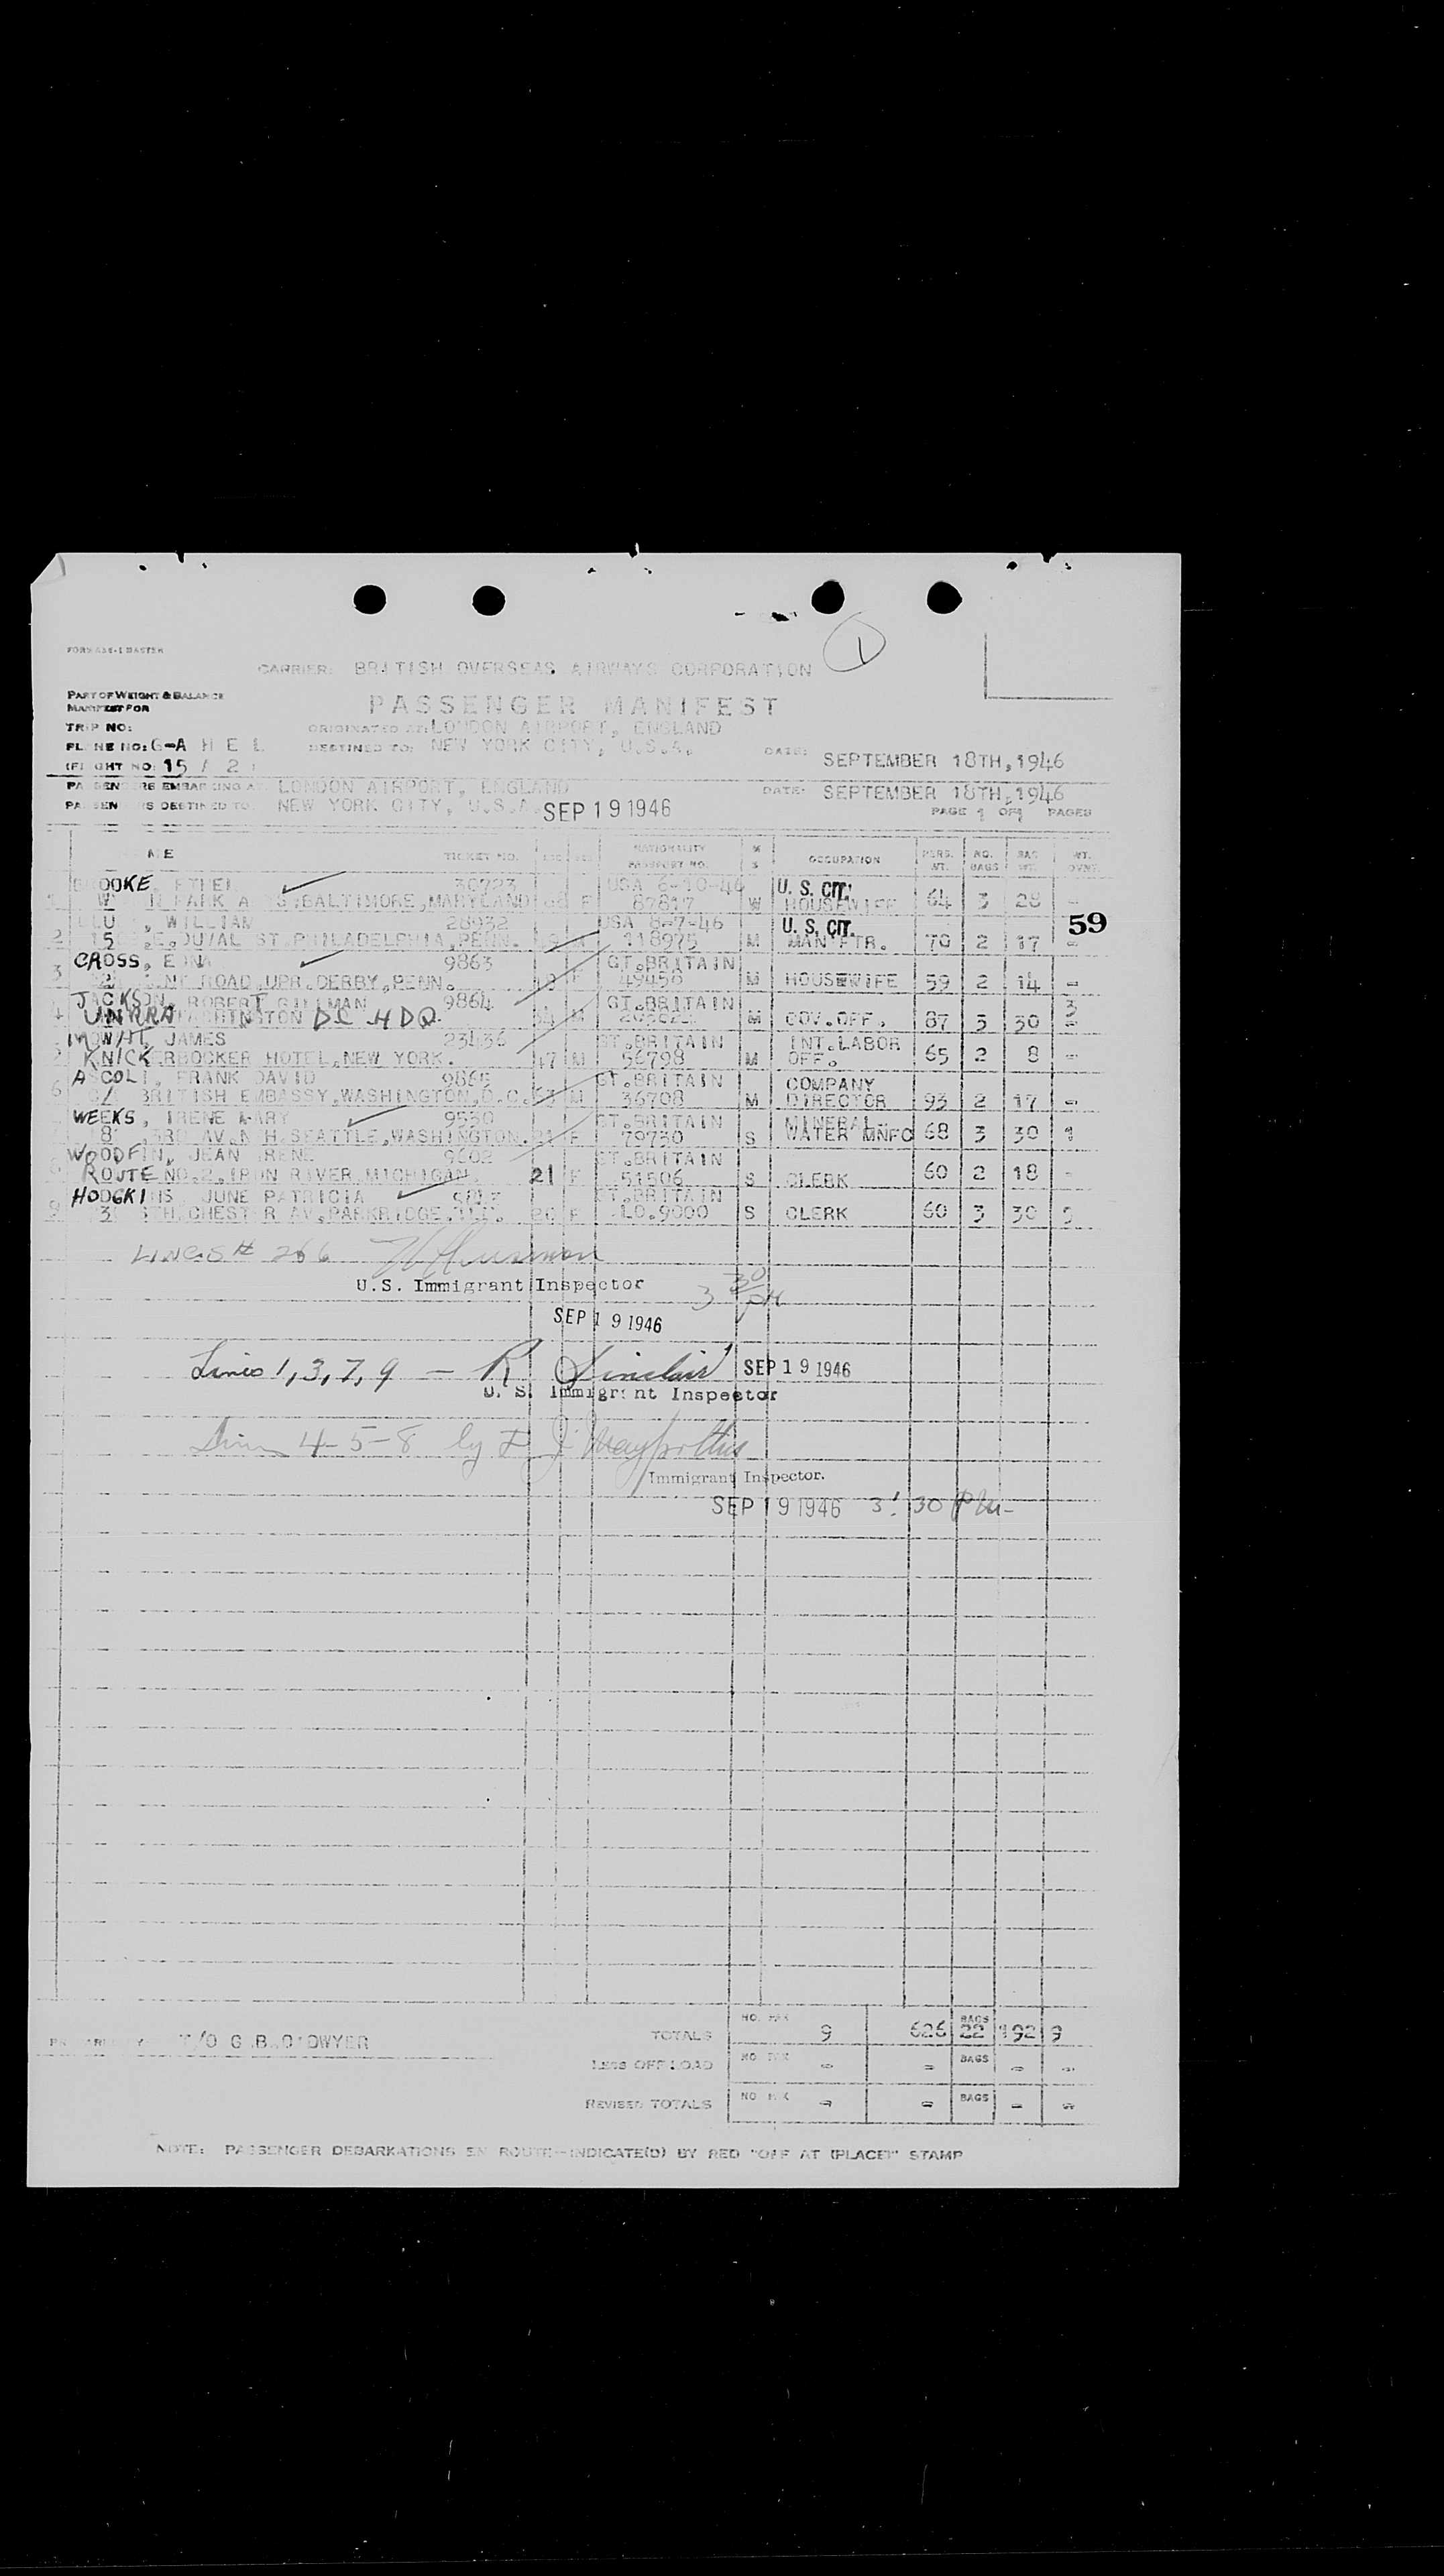 CARRIER: BRITISH OVERSEAS AIRWAYS CORPORATION
1
PART OF WEIGHT & BALANCE
MANIFEST FOR
PASSENGER MANIFEST
TRIP NO:
ORIGINATED AT: LONDON AIRPORT, ENGLAND
PLANE NO: G-A H E L
DESTINED TO: NEW YORK CITY, U.S.A.
DATE: SEPTEMBER 18TH, 1946
FLIGHT NO: 15 / 2
PASSENGERS EMBARKING AT LONDON AIRPORT, ENGLAND DATE: SEPTEMBER 18TH, 1946
PASSENGERS DESTINED TO: NEW YORK CITY, U.S.A. SEP 19 1946 PAGE 1 OF 1 PAGES
NAME TICKET NO. AGE SEX NATIONALITY PASSPORT NO. M S OCCUPATION PERS. WT. NO. BAGS BAG WT. WT. OVWT.
BROOKE, ETHEL 30723 USA 6-10-46 U. S. CIT.
1 PARK BALTIMORE, MARYLAND F 87817 W HOUSEWIFE 64 3 28 -
, WILLIAM 28932 USA 8-7-46 U. S. CIT. 59
2 ST. PHILADELPHIA, PENN. M 118975 M MAN'FTR. 70 2 17 -
CROSS, EDNA 9863 GT.BRITAIN
3 ROAD, UPR. DERBY, PENN. F 49450 M HOUSEWIFE 59 2 14 -
JACKSON, ROBERT GILLMAN 9864 GT.BRITAIN 3
4 UNRRA WASHINGTON DC HDQ. M M GOV.OFF. 87 3 30 -
MOWAT, JAMES 23436 GT.BRITAIN INT.LABOR
KNICKERBOCKER HOTEL, NEW YORK. 47 M 56798 M OFF. 65 2 8 -
ASCOLI, FRANK DAVID 9865 GT.BRITAIN COMPANY
6 BRITISH EMBASSY, WASHINGTON, D.C. 63 M 36708 M DIRECTOR 93 2 17 -
WEEKS, IRENE MARY 9530 GT.BRITAIN MINERAL-
3RD AV. N.H. SEATTLE, WASHINGTON. F 79730 S WATER MNFC 68 3 30 1
WOODFIN, JEAN IRENE 9602 GT.BRITAIN
ROUTE NO. 2, IRON RIVER, MICHIGAN. 21 F 51506 S CLERK 60 2 18 -
HODGKINS JUNE PATRICIA GT.BRITAIN
9 CHESTER AV. PARKRIDGE, ILL. F LO.9000 S CLERK 60 3 30 5
LINES # 2 6
U.S. Immigrant Inspector
3 30 PM
SEP 19 1946
Lines 1, 3, 7, 9 — R Sinclair SEP 19 1946
U. S. Immigrant Inspector
Lines 4-5-8 by
Immigrant Inspector.
SEP 19 1946 3:30 PM-
T/O G.B.O'DWYER
TOTALS NO. PAX 9 626 BAGS 22 192 9
LESS OFF LOAD NO PAX - - BAGS - -
REVISED TOTALS NO PAX - - BAGS - -
NOTE: PASSENGER DEBARKATIONS EN ROUTE—INDICATE(D) BY RED "OFF AT (PLACE)" STAMP